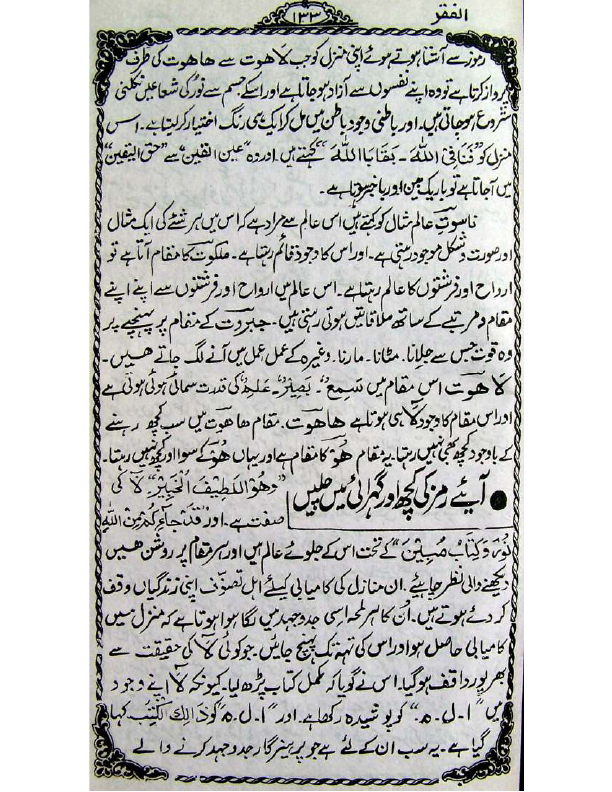 الفقر
۱۳۳
رموز سے آشنا ہوتے ہوئے اپنی منزل کو جب لَاھوت سے ھاھوت کی طرف
پرواز کرتا ہے تو وہ اپنے نفسوں سے آزاد ہو جاتا ہے اور اسکے جسم سے نُور کی شعاعیں نکلنی
شروع ہو جاتی ہیں۔ اور باطنی وجود باطن میں مل کر ایک ہی رنگ اختیار کر لیتا ہے۔ اس
منزل کو ”فَنَا فِی اللّٰہ ۔ بَقَا بِا اللّٰہ“ کہتے ہیں اور وہ ”عین الیقین“ سے ”حق الیقین“
میں آ جاتا ہے تو باریک بین اور با خبر ہوتا ہے۔
ناسوت عالم مثال کو کہتے ہیں اس عالم سے مراد ہے کہ اس میں ہر شئے کی ایک مثال
اور صورت و شکل موجود رہتی ہے۔ اور اس کا وجود قائم رہتا ہے۔ ملکوت کا مقام آتا ہے تو
ارواح اور فرشتوں کا عالم رہتا ہے۔ اس عالم میں ارواح اور فرشتوں سے اپنے اپنے
مقام و مرتبے کے ساتھ ملاقاتیں ہوتی رہتی ہیں۔ جبروت کے مقام پر پہنچنے پر
وہ قوت جس سے جلانا۔ مٹانا۔ مارنا۔ وغیرہ کے عمل عمل میں آنے لگ جاتے ھیں۔
لَاھوت اس مقام میں سَمِیعٌ ۔ بَصِیْرٌ ۔ عَلِمٌ کی قدرت سمائی ہوئی ہوتی ہے
اور اس مقام کا وجود لَا ہی ہوتا ہے ھاھوت۔ مقام ھاھوت میں سب کچھ رہنے
کے باوجود کچھ بھی نہیں رہتا۔ یہ مقام ھُو کا مقام ہے اور یہاں ھُو کے سوا اور کچھ نہیں رہتا۔
● آیئے رمز کی کچھ اور گہرائی میں چلیں
”وَھُوَ اللَّطِیْفُ الْخَبِیْرُ“ لَا کی
صفت ہے۔ اور ”قَدْ جَاءَکُمْ مِّنَ اللّٰہِ
نُوْرٌ وَّ کِتَابٌ مُّبِیْنٌ“ کے تحت اس کے جلوئے عالم میں اور ہر مقام پر روشن ھیں
دیکھنے والی نظر چاہیئے۔ ان منازل کی کامیابی کیلئے اہل تصوّف اپنی زندگیاں وقف
کر دئے ہوتے ہیں۔ اُن کا ہر لمحہ اسی جدوجہد میں لگا ہوا ہوتا ہے کہ منزل میں
کامیابی حاصل ہو اور اس کی تہہ تک پہنچ جائیں۔ جو کوئی لَا کی حقیقت سے
بھرپور واقف ہو گیا۔ اس نے گویا کہ مکمل کتاب پڑھ لیا۔ کیونکہ لَا اپنے وجود
میں ”ا۔ل۔م۔“ کو پوشیدہ رکھا ہے۔ اور ”ا۔ل۔م“ کو ذَالِکَ الْکِتٰبُ کہا
گیا ہے۔ یہ سب ان کے لئے ہے جو پرہیزگار جدوجہد کرنے والے